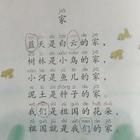 jiā
家
蓝天是白云的家，
树林是小鸟的家，
小河是鱼儿的家，
泥土是种子的家。
我们是祖国的花朵，
祖国就是我们的家。